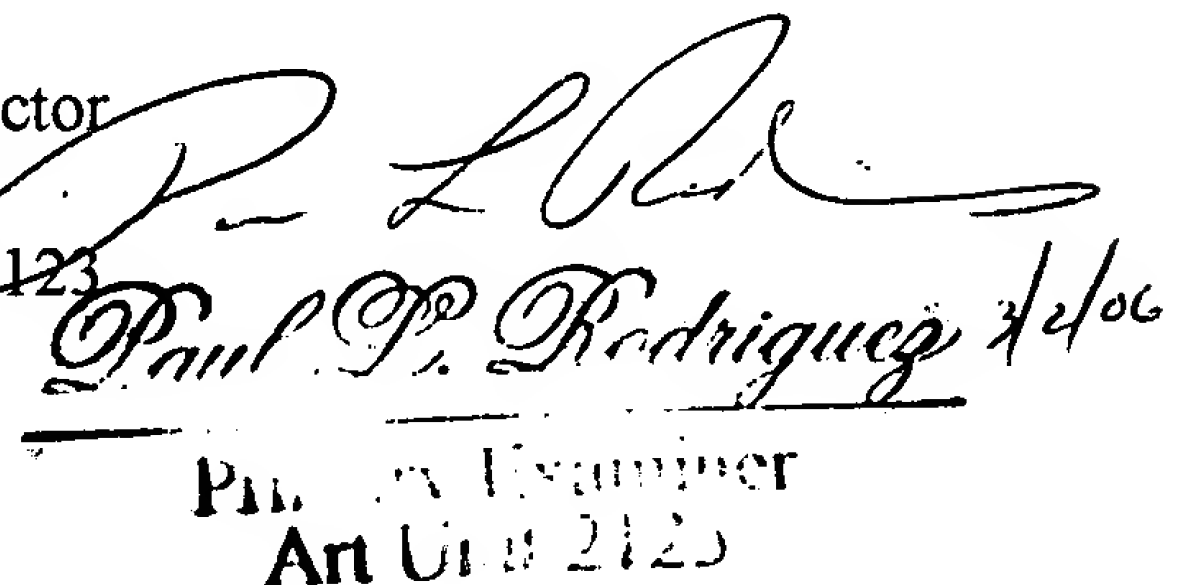 ctor
123
Paul P. Rodriguez 3/2/06
Examiner
Art Unit 2125